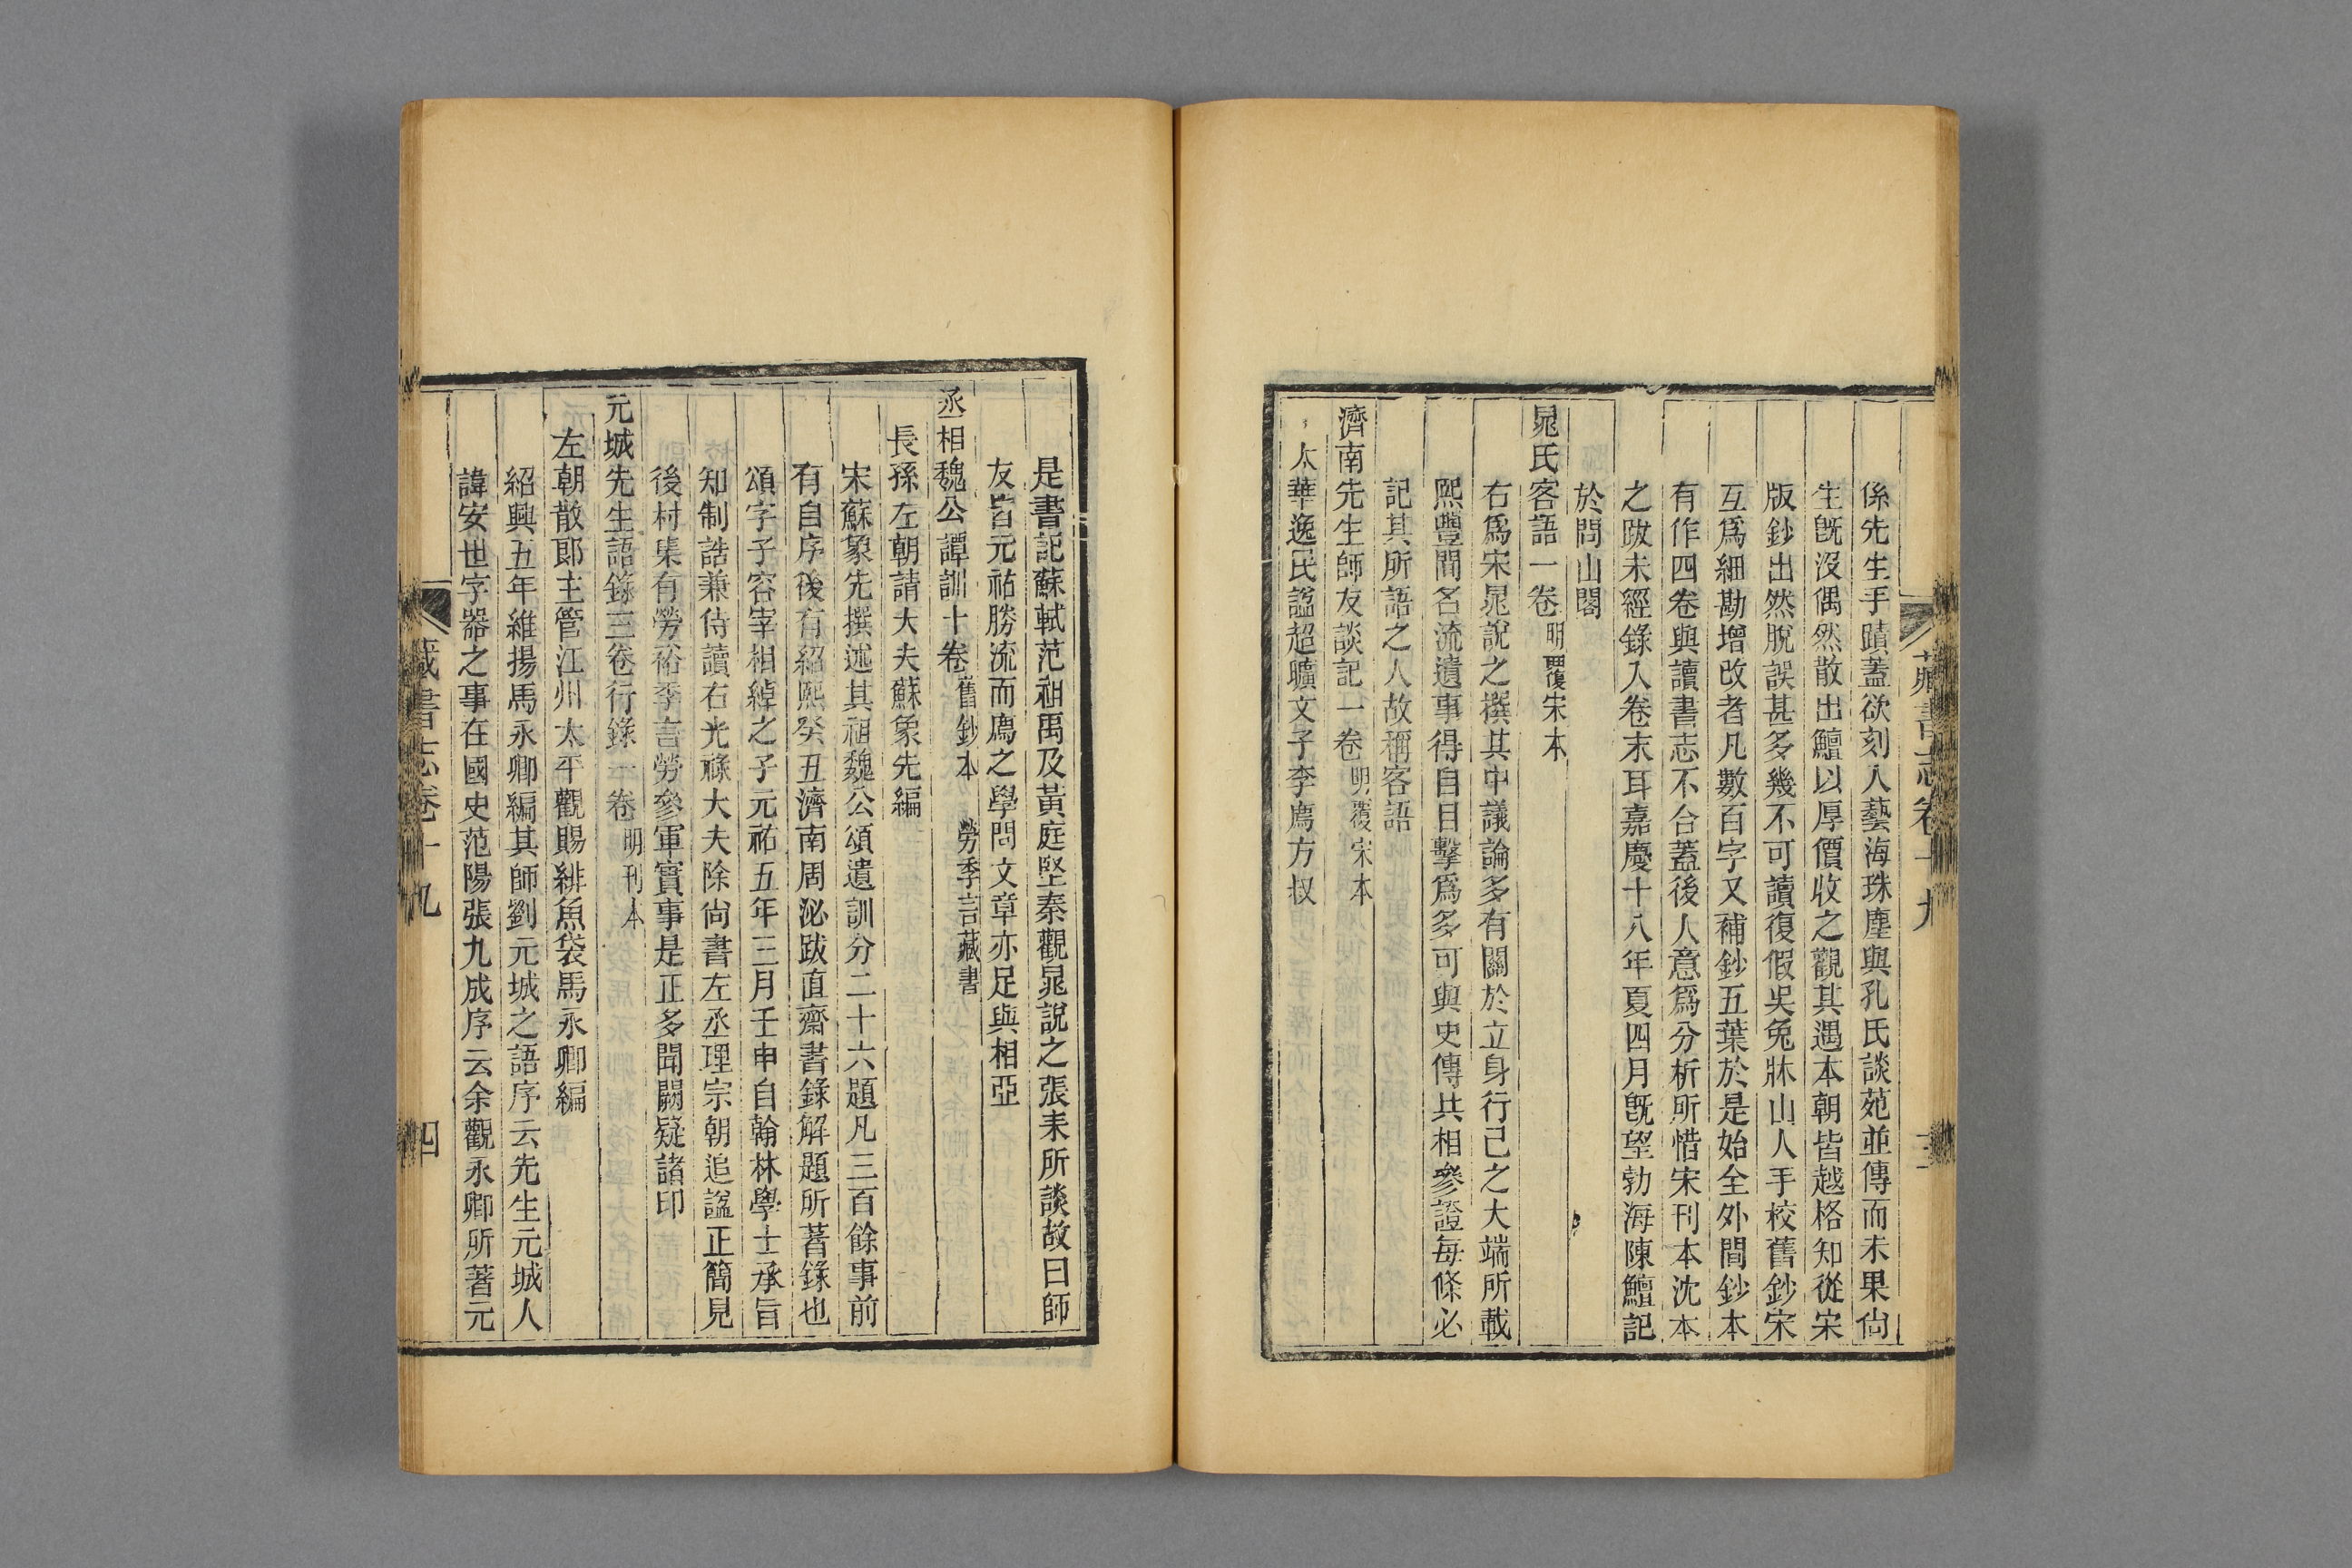 藏書志卷十九
係先生手蹟蓋欲刻入藝海珠塵與孔氏談苑並傳而未果尙
生旣沒偶然散出鱣以厚價收之觀其遇本朝皆越格知從宋
版鈔出然脫誤甚多幾不可讀復假吳兔牀山人手校舊鈔宋
互爲細勘增改者凡數百字又補鈔五葉於是始全外間鈔本
有作四卷與讀書志不合蓋後人意爲分析所惜宋刊本沈本
之跋未經錄入卷末耳嘉慶十八年夏四月旣望勃海陳鱣記
於問山閣
晁氏客語一卷明覆宋本
右爲宋晁說之撰其中議論多有關於立身行己之大端所載
熙豐間名流遺事得自目擊爲多可與史傳共相參證每條必
記其所語之人故稱客語
濟南先生師友談記一卷明覆宋本
太華逸民謚超曠文子李廌方叔
是書記蘇軾范祖禹及黃庭堅秦觀晁說之張耒所談故曰師
友皆元祐勝流而廌之學問文章亦足與相亞
丞相魏公譚訓十卷舊鈔本 勞季言藏書
長孫左朝請大夫蘇象先編
宋蘇象先撰述其祖魏公頌遺訓分二十六題凡三百餘事前
有自序後有紹熙癸丑濟南周泌跋直齋書錄解題所著錄也
頌字子容宰相綽之子元祐五年三月壬申自翰林學士承旨
知制誥兼侍讀右光祿大夫除尙書左丞理宗朝追謚正簡見
後村集有勞裕季言勞參軍實事是正多聞闕疑諸印
元城先生語錄三卷行錄一卷明刊本
左朝散郞主管江州太平觀賜緋魚袋馬永卿編
紹興五年維揚馬永卿編其師劉元城之語序云先生元城人
諱安世字器之事在國史范陽張九成序云余觀永卿所著元
藏書志卷十九
四